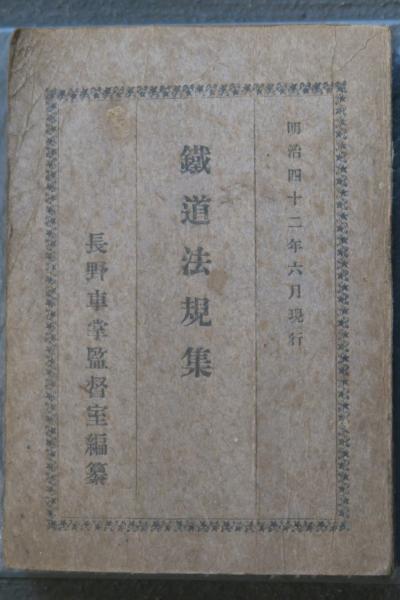 明治四十二年六月現行
鐵道法規集
長野車掌監督室編纂